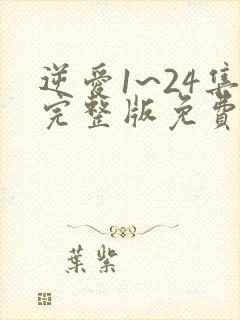 逆愛1~24集
完整版免費
葉紫